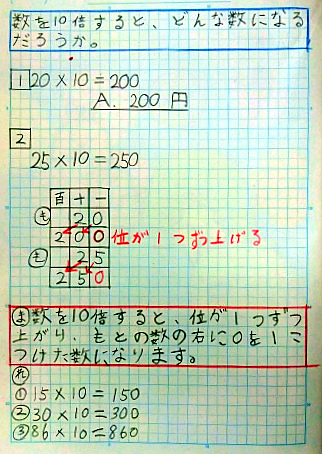 数を10倍すると、どんな数になる
だろうか。
1 20×10=200
A. 200円
2
25×10=250
百 十 一
も 2 0
2 0 0 位が1つずつ上げる
も 2 5
2 5 0
ま 数を10倍すると、位が1つずつ
上がり、もとの数の右に0を1こ
つけた数になります。
れ
① 15×10=150
② 30×10=300
③ 86×10=860